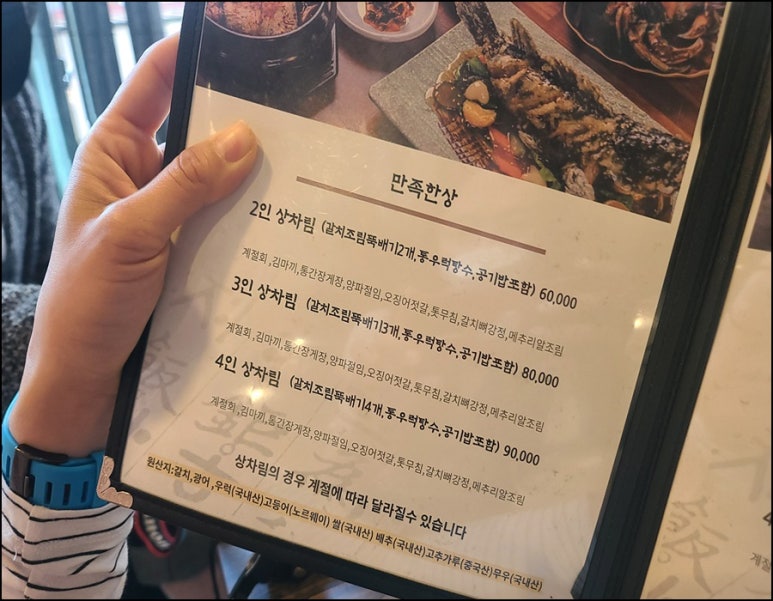 만족한상
2인 상차림 (갈치조림뚝배기2개,통우럭탕수,공기밥포함) 60,000
계절회,김마끼,통간장게장,양파절임,오징어젓갈,톳무침,갈치뼈강정,메추리알조림
3인 상차림 (갈치조림뚝배기3개,통우럭탕수,공기밥포함) 80,000
계절회,김마끼,통간장게장,양파절임,오징어젓갈,톳무침,갈치뼈강정,메추리알조림
4인 상차림 (갈치조림뚝배기4개,통우럭탕수,공기밥포함) 90,000
계절회,김마끼,통간장게장,양파절임,오징어젓갈,톳무침,갈치뼈강정,메추리알조림
상차림의 경우 계절에 따라 달라질수 있습니다
원산지:갈치,광어,우럭(국내산)고등어(노르웨이) 쌀(국내산) 배추(국내산)고추가루(중국산)무우(국내산)